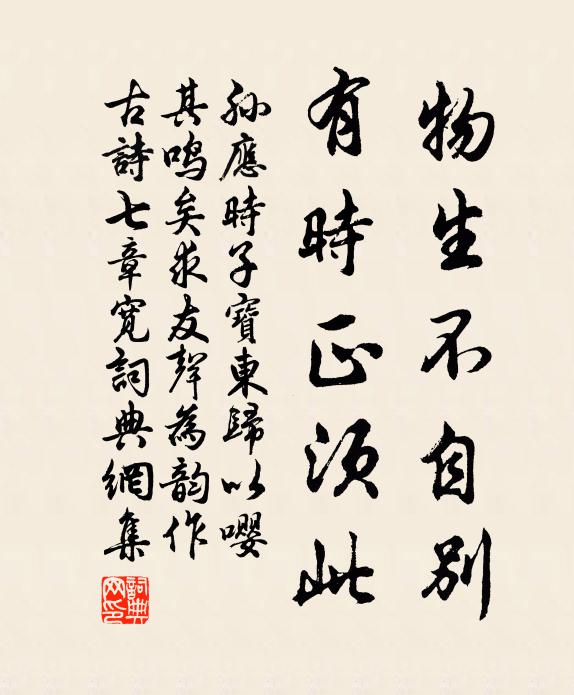 物生不自别
有時正須此
孙應時子寶東歸以嚶
其鸣矣求友聲為韵作
古詩七章寬詞典網集
詞典
网印